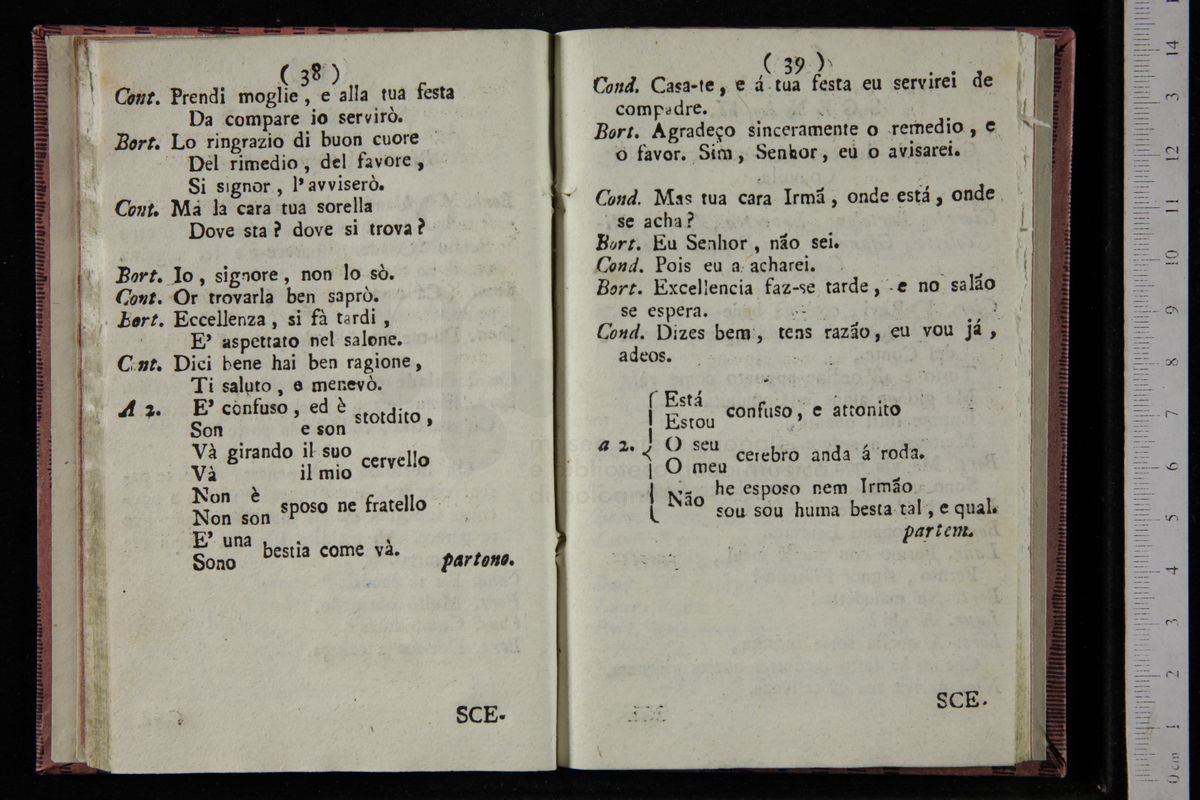 ( 38 )
Cont. Prendi moglie, e alla tua festa
Da compare io servirò.
Bort. Lo ringrazio di buon cuore
Del rimedio, del favore,
Si signor, l'avviserò.
Cont. Mà la cara tua sorella
Dove sta? dove si trova?
Bort. Io, signore, non lo sò.
Cont. Or trovarla ben saprò.
Bort. Eccellenza, si fà tardi,
E' aspettato nel salone.
Cont. Dici bene hai ben ragione,
Ti saluto, e menevò.
A 2. E' confuso, ed è
Son e son stotdito,
Và girando il suo
Và il mio cervello
Non è
Non son sposo ne fratello
E' una
Sono bestia come và. partono.
SCE-
( 39 )
Cond. Casa-te, e á tua festa eu servirei de
compadre.
Bort. Agradeço sinceramente o remedio, e
o favor. Sim, Senhor, eu o avisarei.
Cond. Mas tua cara Irmã, onde está, onde
se acha?
Bort. Eu Senhor, não sei.
Cond. Pois eu a acharei.
Bort. Excellencia faz-se tarde, e no salão
se espera.
Cond. Dizes bem, tens razão, eu vou já,
adeos.
Está
Estou confuso, e attonito
a 2. O seu
O meu cerebro anda á roda.
Não he esposo nem Irmão
sou sou huma besta tal, e qual.
partem.
SCE-
0 cm 1 2 3 4 5 6 7 8 9 10 11 12 13 14